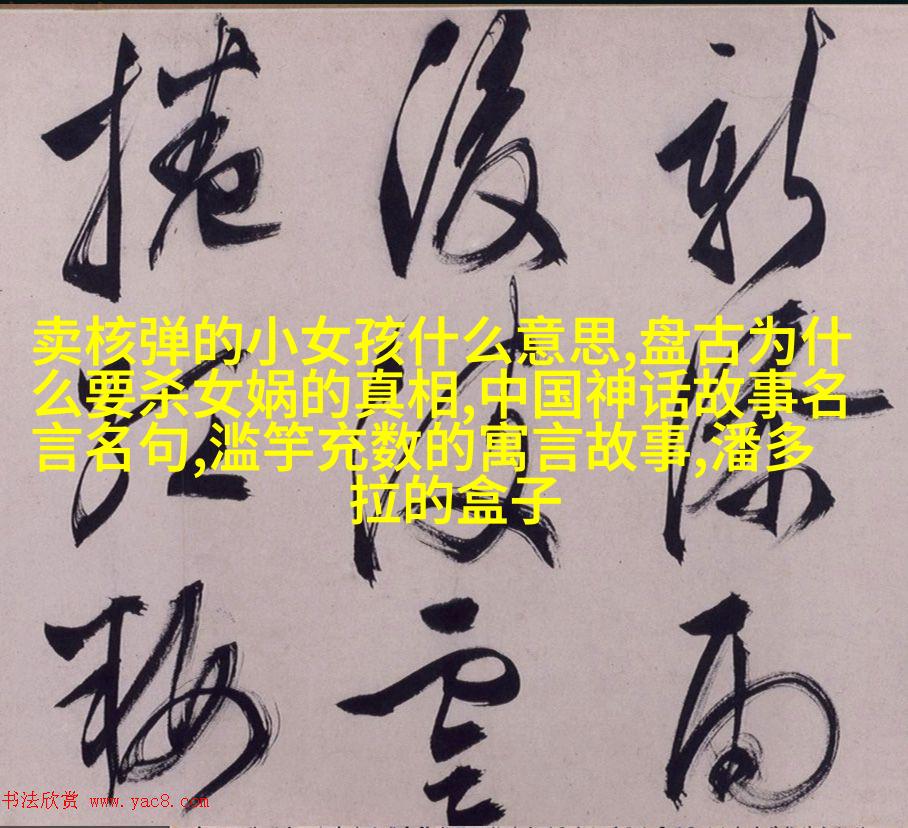 卖核弹的小女孩什么意思,盘古为什
么要杀女娲的真相,中国神话故事名
言名句,滥竽充数的寓言故事,潘多
拉的盒子
新雨
後雲
捲梅
书法欣赏 www.yac8.com